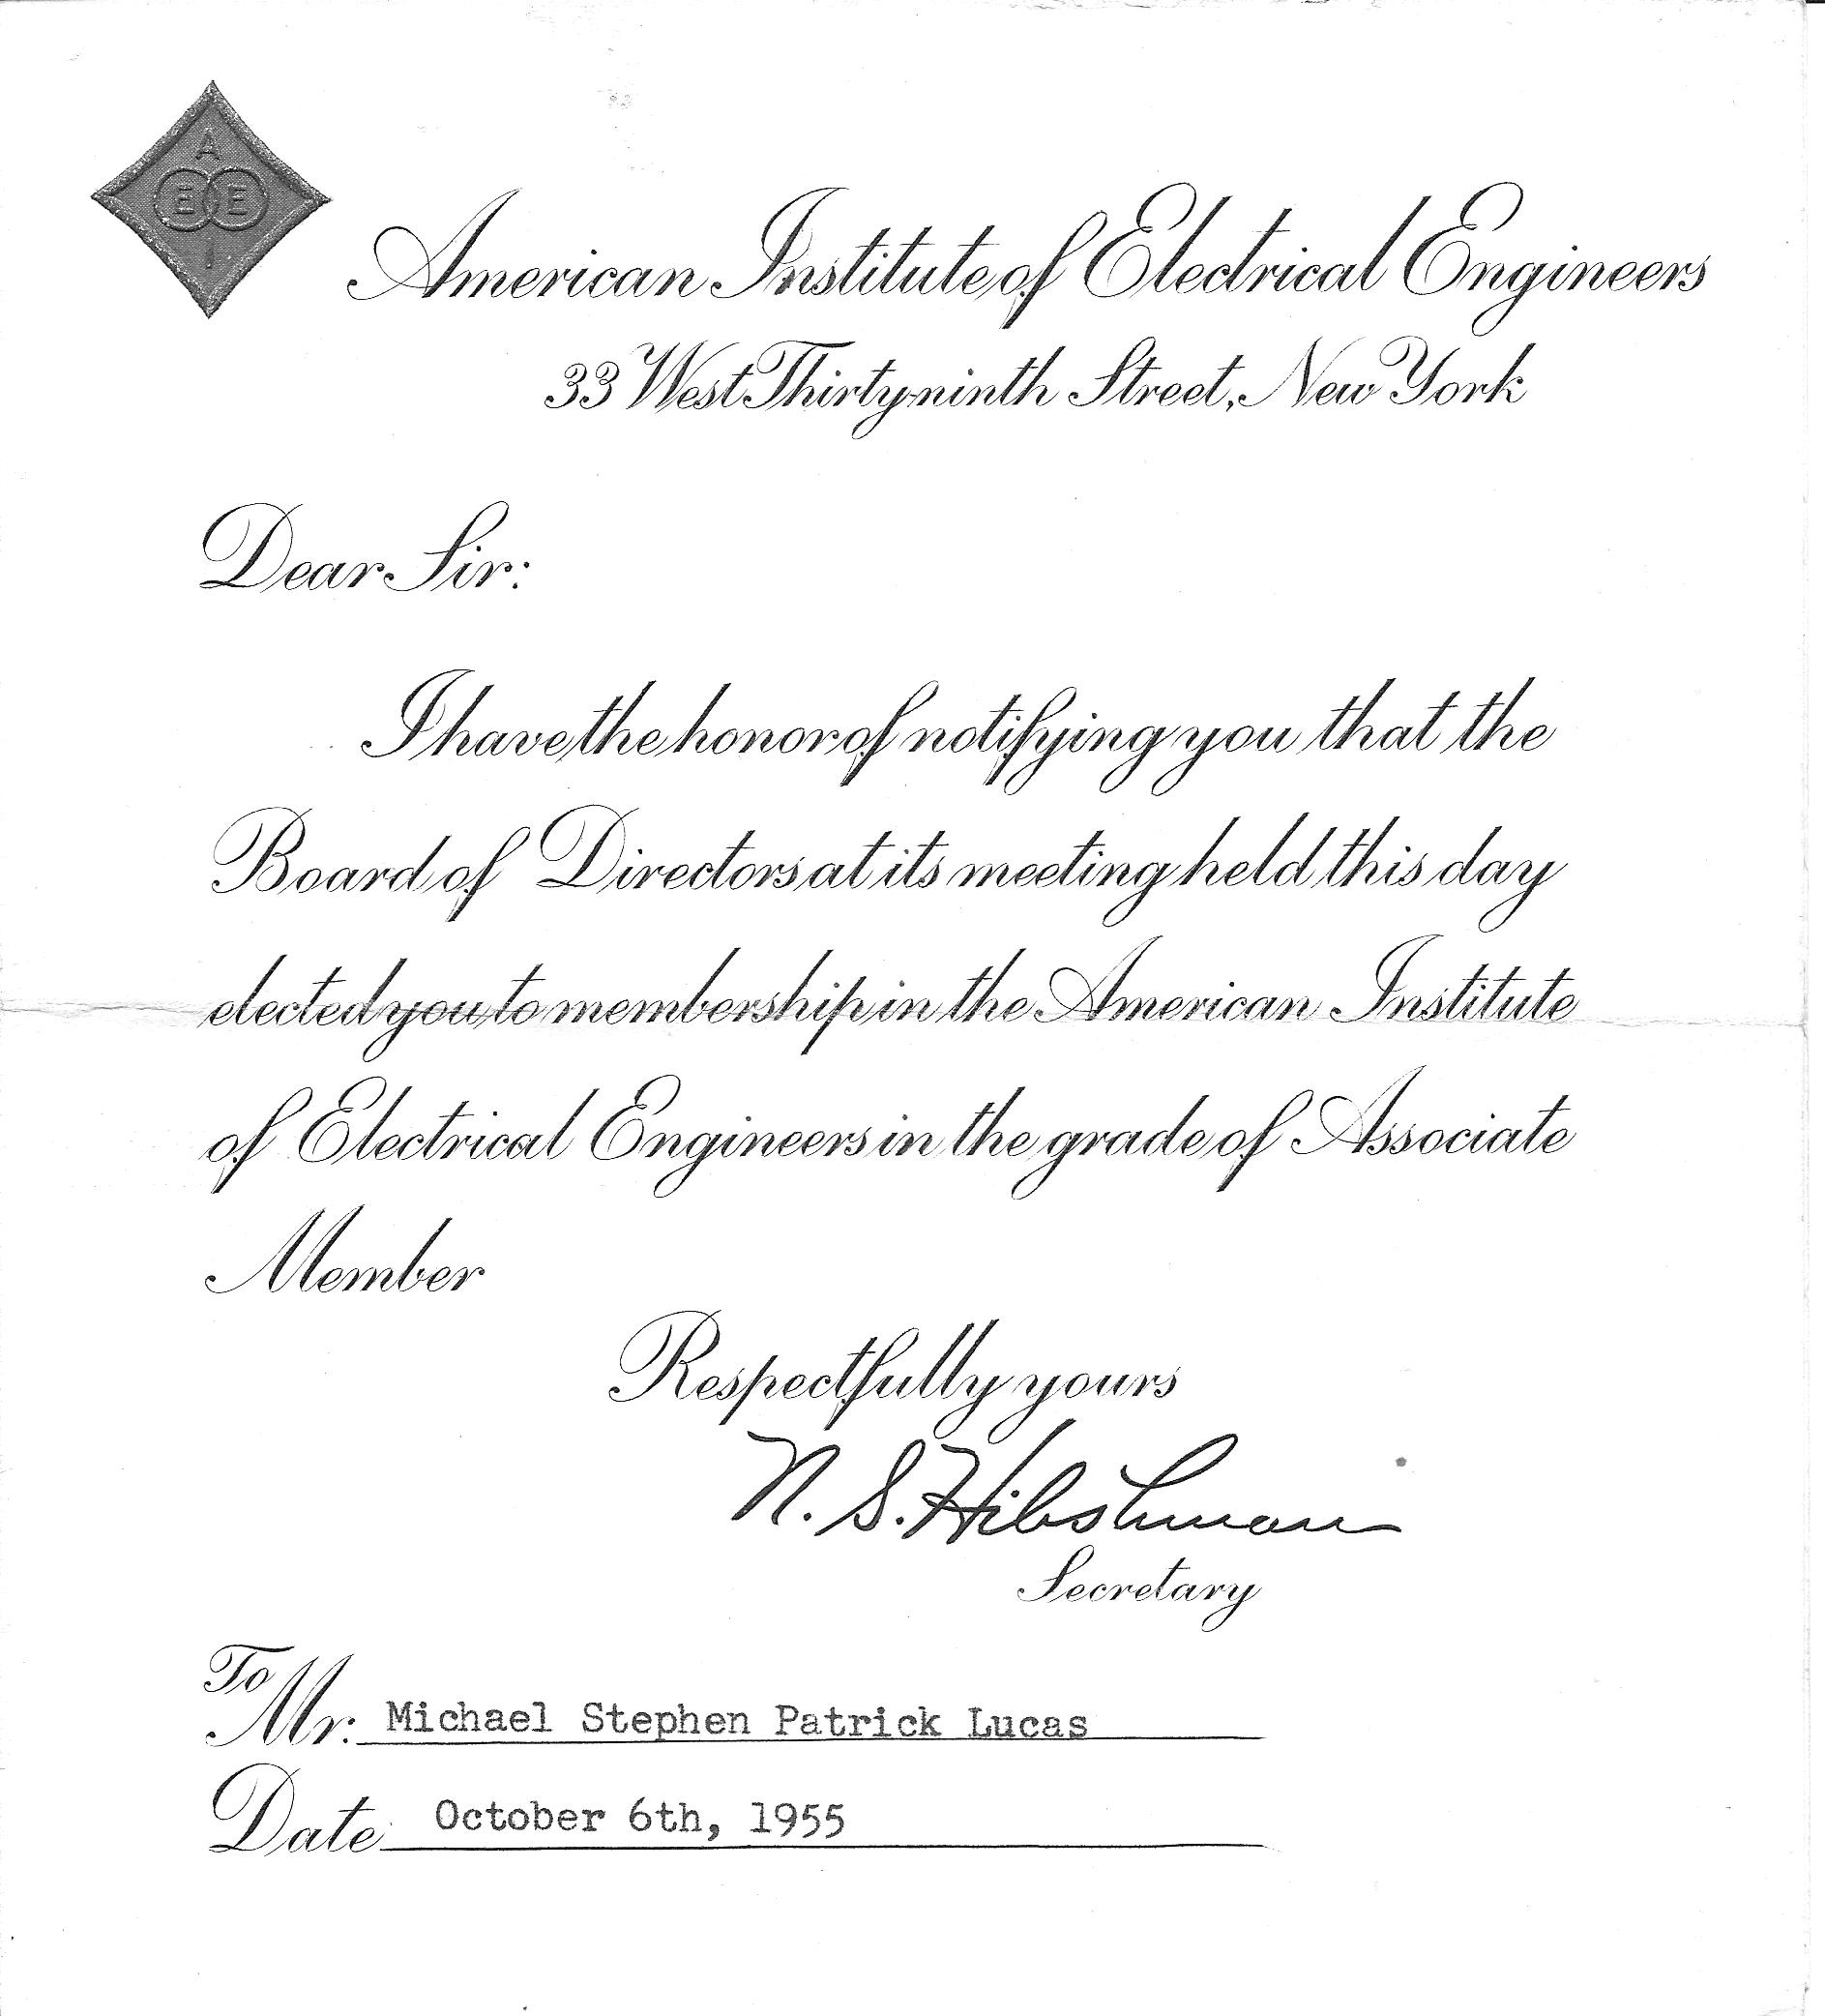 A
E E
I
American Institute of Electrical Engineers
33 West Thirty-ninth Street, New York
Dear Sir:
I have the honor of notifying you that the
Board of Directors at its meeting held this day
elected you to membership in the American Institute
of Electrical Engineers in the grade of Associate
Member
Respectfully yours
N. S. Hibshman
Secretary
To
Mr. Michael Stephen Patrick Lucas
Date October 6th, 1955